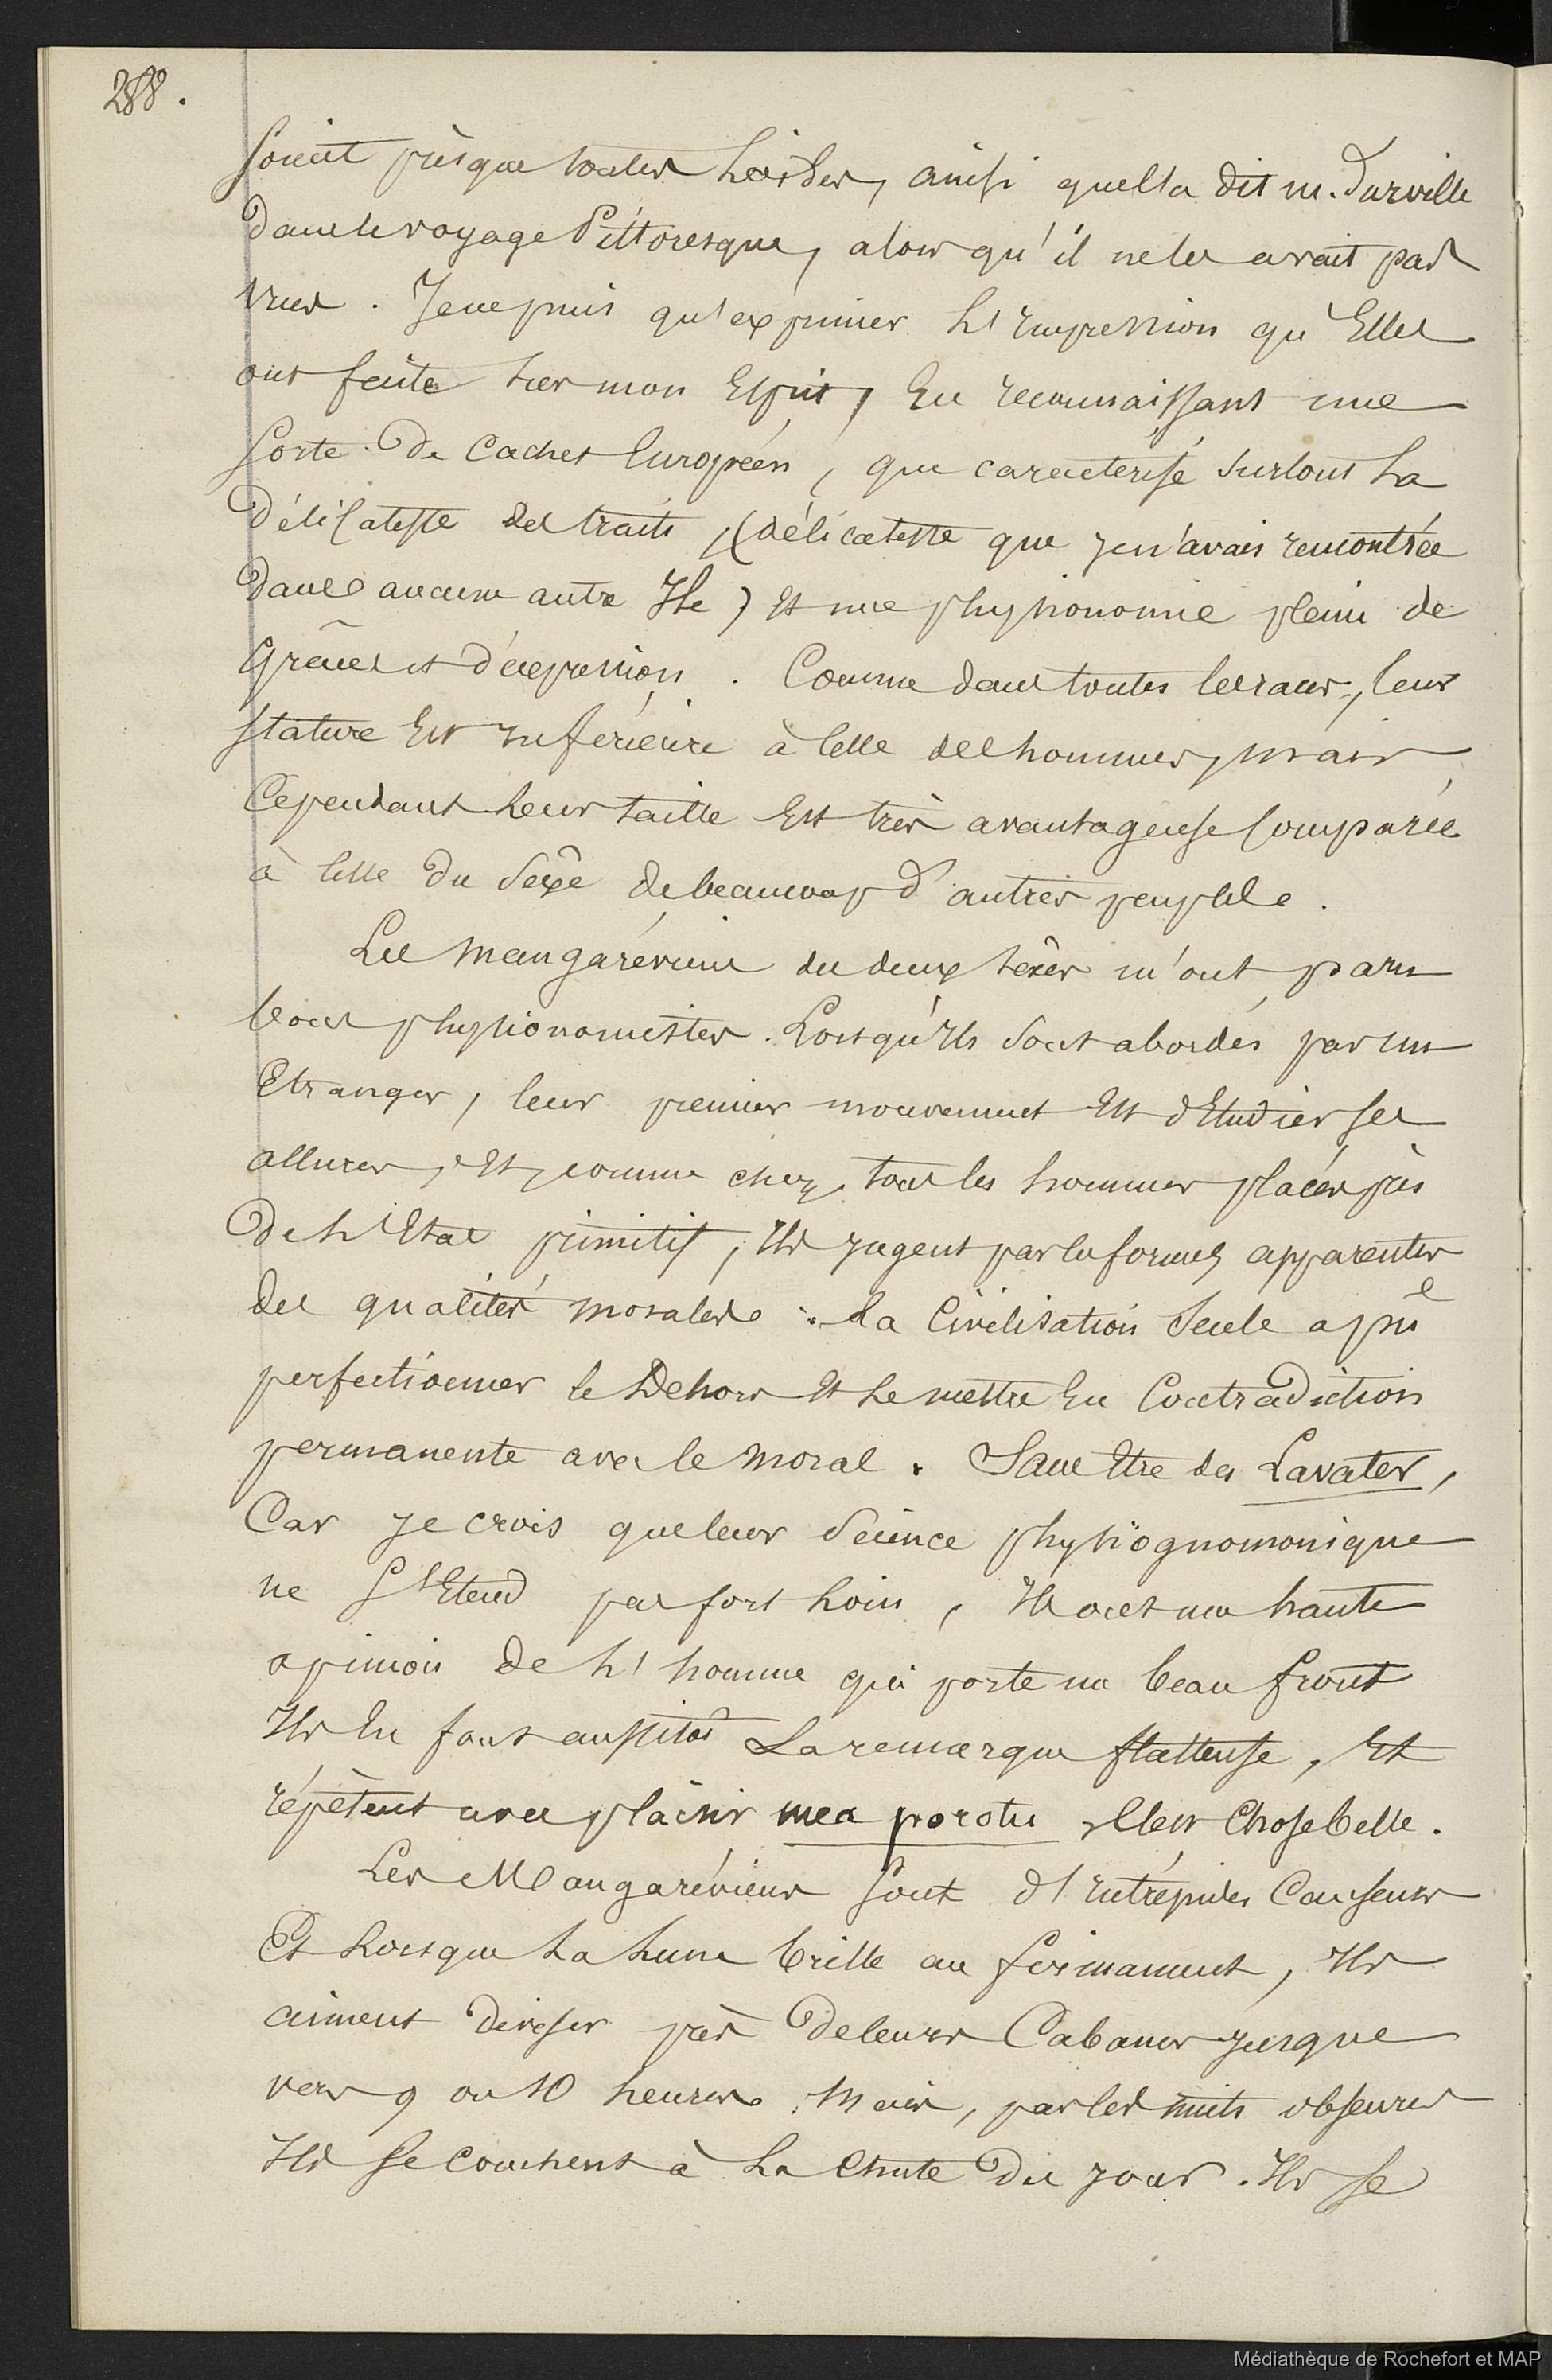 288.
soient presque toutes laides, ainsi quella dit m. Durville
dans le voyage Pittoresque, alors qu'il ne les avait pas
vues. Je ne puis qu'exprimer l'Impression qu'Elles
ont faite sur mon Esprit, En reconnaissant une
sorte de Cachet Européen, que caractérise surtout la
délicatesse des traits, (délicatesse que je n'avais rencontrée
dans aucune autre Ile) Et une physionomie pleine de
Grâces et d'expression. Comme dans toutes les races, leur
stature Est Inférieure à Celle des hommes, mais
Cependant leur taille Est très avantageuse Comparée
à Celle du sexe de beaucoup d'autres peuples.
Les Mangaréviens des deux sexes m'ont paru
bons physionomistes. Lorsqu'Ils sont abordés par un
Etranger, leur premier mouvement Est d'Etudier ses
allures, Et, comme chez tous les hommes placés près
de l'Etat primitif, Ils jugent par les formes apparentes
des qualités morales. La Civilisation seule a pu
perfectionner le Dehors Et le mettre En Contradiction
permanente avec le moral. Sans Etre des Lavater,
Car je crois que leur science physiognomonique
ne s'Etend pas fort loin, Ils ont une haute
opinion de l'homme qui porte un beau front
Ils En font aussitôt La remarque flatteuse, Et
répètent avec plaisir mea porotu, C'est Chose belle.
Les Mangaréviens sont d'Intrépides Causeurs
Et Lorsque la lune brille au firmament, Ils
aiment deviser près de leurs Cabanes jusque
vers 9 ou 10 heures. Mais, par les nuits obscures
Ils se couchent à la Chute du jour. Ils se
Médiathèque de Rochefort et MAP